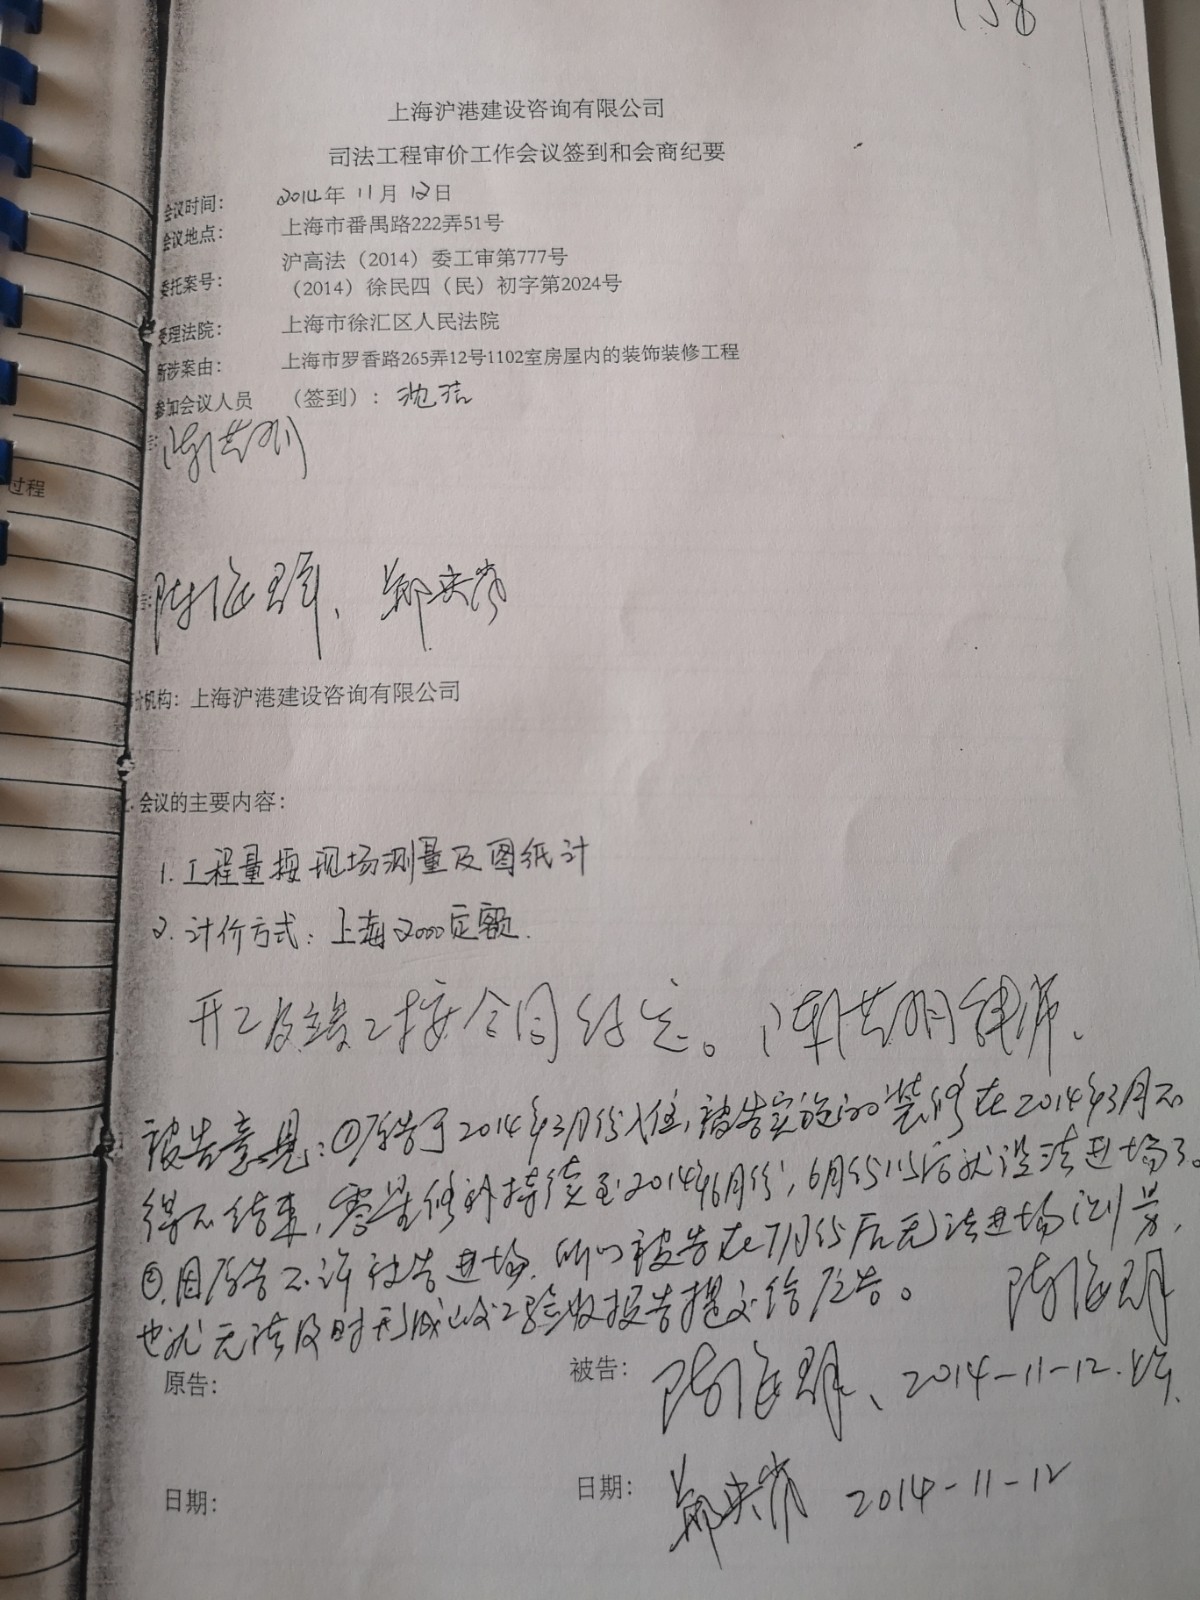 158
上海沪港建设咨询有限公司
司法工程审价工作会议签到和会商纪要
会议时间: 2014年 11月 12日
会议地点: 上海市番禺路222弄51号
委托案号: 沪高法（2014）委工审第777号
（2014）徐民四（民）初字第2024号
受理法院: 上海市徐汇区人民法院
所涉案由: 上海市罗香路265弄12号1102室房屋内的装饰装修工程
参加会议人员 （签到）:
过程
价机构: 上海沪港建设咨询有限公司
会议的主要内容:
1. 工程量按现场测量及图纸计
2. 计价方式: 上海2000定额.
开工及竣工按合同约定。律师.
被告意见: ①原告于2014年3月份入住, 被告实施的装修在2014年3月不
得不结束, 零星修补持续至2014年6月份, 6月份以后就没法进场了。
②. 因原告不许被告进场, 所以被告在7月份后无法进场
也就无法及时形成竣工验收报告提交给原告。
原告: 被告: 2014-11-12.
日期: 日期: 2014-11-12